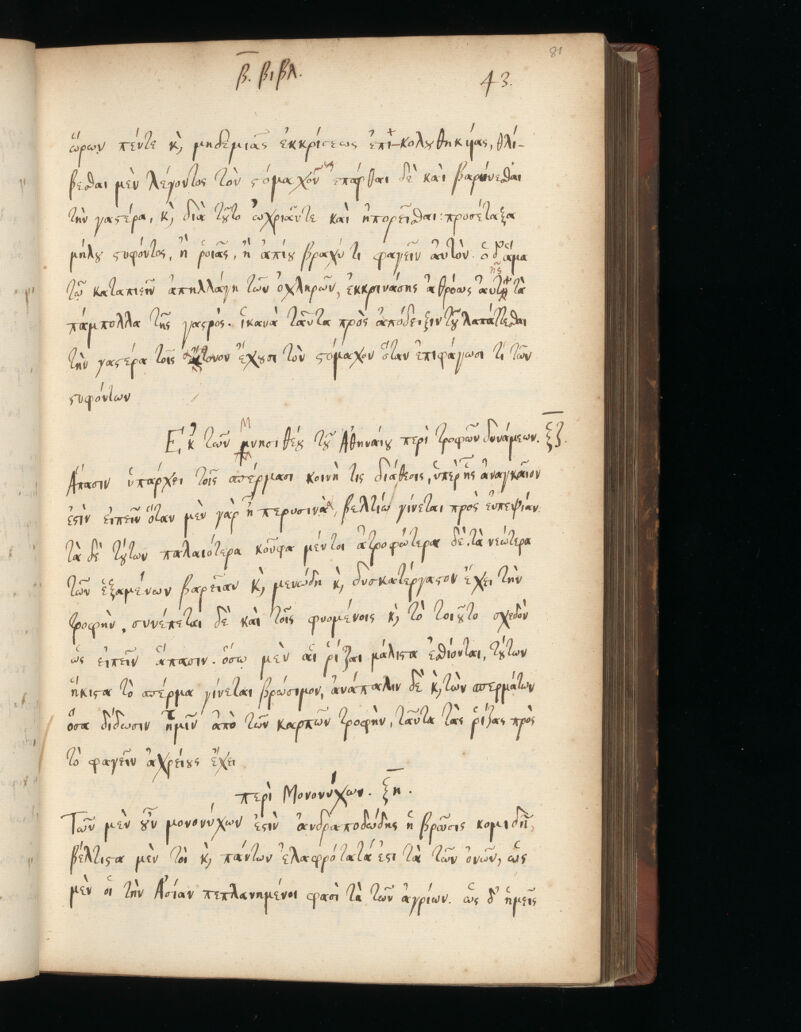 81
β. βιβλ.
43.
ὥρων πέντε κ, μηδεμιᾶς ἐκκρίσεως ἐπι κολουθηκυίας, θλί-
βεσθαι μὲν λέγοντος τὸν στόμαχον ἐπάρθαι δὲ καὶ βαρύνεσθαι
τὴν γαστέρα, κ, διὰ τοῦτο ὠχριᾶντε καὶ ἠπορεῖσθαι: προσέταξα
μήλου στυφόντος, ἢ ῥοιᾶς, ἢ ἀπίου βραχύ τι φαγεῖν αὐτὸν. ὁ δ' ἅμα
τῷ καταπιεῖν ἀπηλλάγη τῶν ὀχληρῶν, ἐκκρινάσης ἀθρόως τὰ
πάμπολλα τῆς γαστρός. ἱκανὰ ταῦτα πρὸς ἀπόδειξιν τοῦ λαπάττεσθαι
τὴν γαστέρα τοῖς ἄτονον ἔχουσι τὸν στόμαχον ὅταν ἐπιφάγωσι τι τῶν
στυφόντων
Ἐκ τῶν μνησιθέου τοῦ Ἀθηναίου περὶ τροφῶν δυνάμεων. ξζ.
Ἅπασιν ὑπάρχει τοῖς σπέρμασι κοινή τις διάθεσις, ὑπὲρ ἧς ἀναγκαῖον
ἐστὶν εἰπεῖν ὅταν μὲν γὰρ ᾖ περυσινὰ, βελτίω γίνεται πρὸς εὐπεψίαν.
τὰ δὲ τούτων παλαιότερα κοῦφα μέντοι ἀτροφώτερα δὲ. τὰ νεώτερα
τῶν ἐξαμένων βαρεῖαν κ, μενώδη κ, δυσκατέργαστον ἔχει τὴν
τροφὴν, συνέπεται δὲ καὶ τοῖς φυομένοις κ, τὸ τοιοῦτο σχεδὸν
ὡς εἰπεῖν ἅπασιν. ὅσῳ μὲν αἱ ῥίζαι μάλιστα ἐσθίονται, τούτων
ἥκιστα τὸ σπέρμα γίνεται βρώσιμον, ἀνάπαλιν δὲ κ, τῶν σπερμάτων
ὅσα δίδωσιν ἡμῖν ἀπὸ τῶν καρπῶν τροφὴν, ταῦτα τὰς ῥίζας πρὸς
τὸ φαγεῖν ἀχρείους ἔχει
περὶ Μονονύχων. ξη.
Τῶν μὲν οὖν μονονύχων ἐστὶν ἀνδραποδώδης ἡ βρῶσις κομιδῇ,
βέλτιστα μὲν τοι κ, πάντων ἐλαφρότατά ἐστι τὰ τῶν ὀνῶν, ὡς
μὲν οἱ τὴν Ἀσίαν πεπλανημένοι φασὶ τὰ τῶν ἀγρίων. ὡς δ' ἡμεῖς